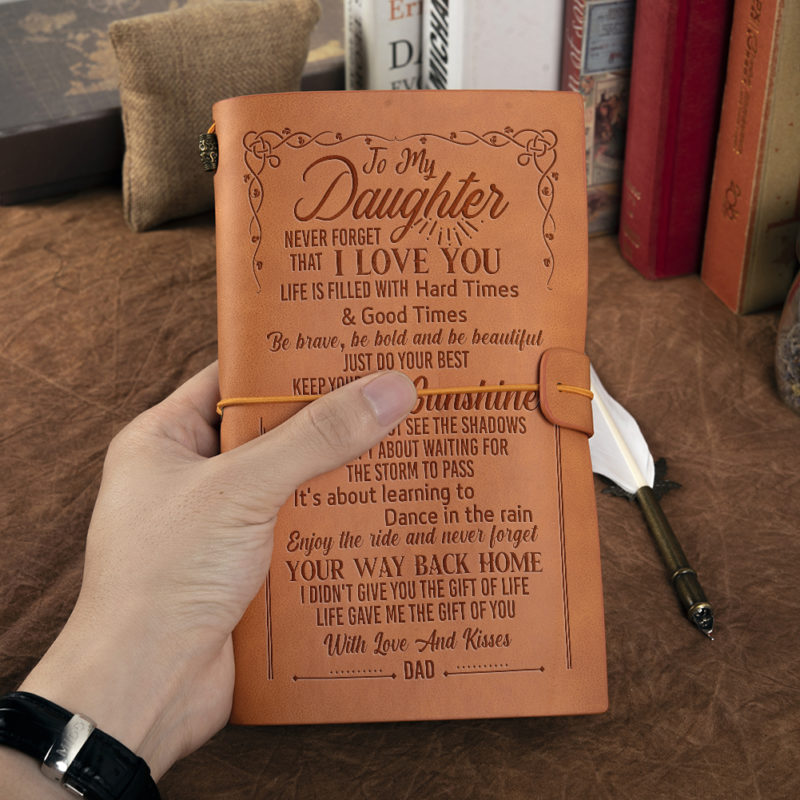 To My
Daughter
NEVER FORGET
THAT I LOVE YOU
LIFE IS FILLED WITH Hard Times
& Good Times
Be brave, be bold and be beautiful
JUST DO YOUR BEST
KEEP YOUR Sunshine
SEE THE SHADOWS
ABOUT WAITING FOR
THE STORM TO PASS
It's about learning to
Dance in the rain
Enjoy the ride and never forget
YOUR WAY BACK HOME
I DIDN'T GIVE YOU THE GIFT OF LIFE
LIFE GAVE ME THE GIFT OF YOU
With Love And Kisses
DAD